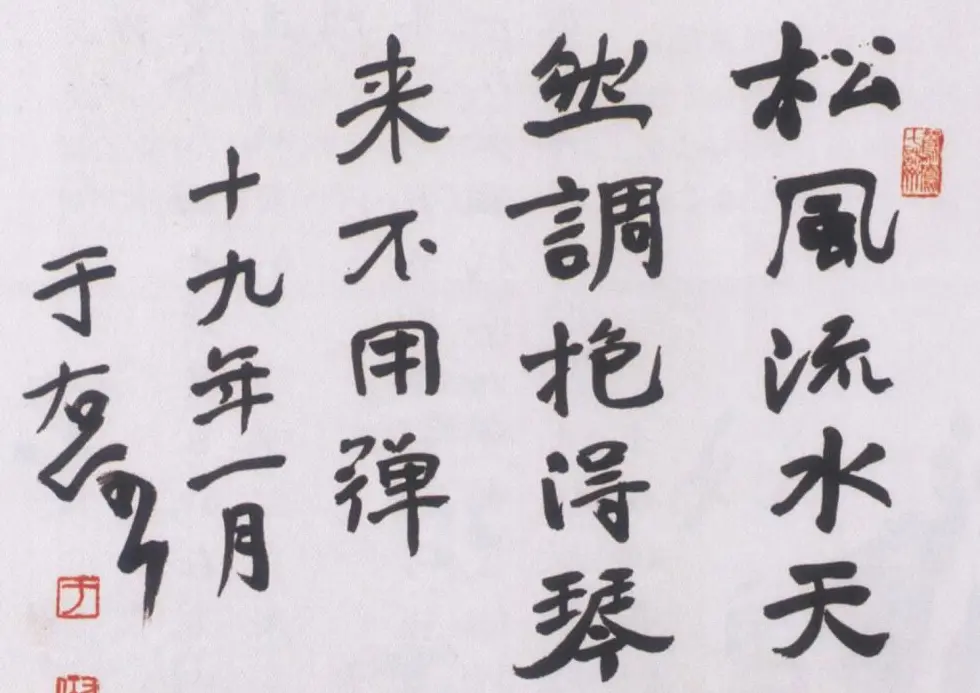 松風流水天
然調抱得琴
来不用弹
十九年一月
于右任